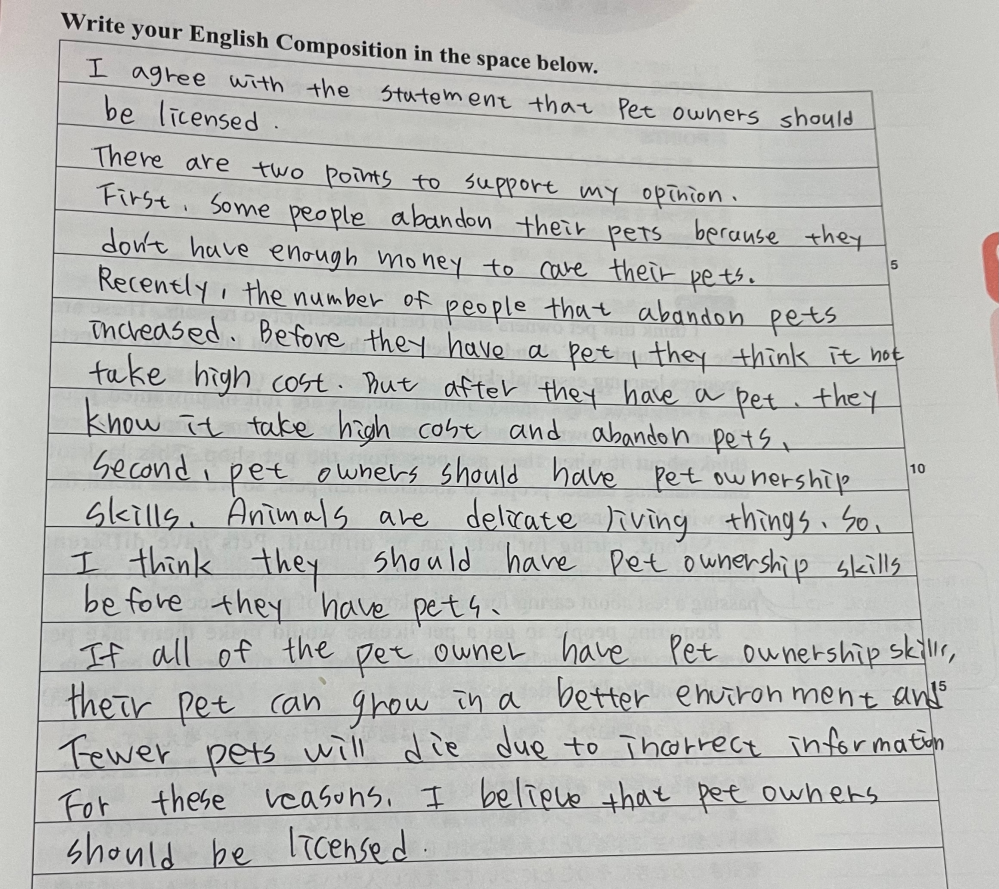 Write your English Composition in the space below.
I agree with the statement that Pet owners should
be licensed.
There are two points to support my opinion.
First, some people abandon their pets because they
don't have enough money to care their pets.
5
Recently, the number of people that abandon pets
increased. Before they have a pet, they think it not
take high cost. But after they have a pet, they
know it take high cost and abandon pets.
Second, pet owners should have pet ownership
10
skills. Animals are delicate living things. So,
I think they should have pet ownership skills
before they have pets.
If all of the pet owner have Pet ownership skills,
their pet can grow in a better environment and
15
Fewer pets will die due to incorrect information
For these reasons, I believe that pet owners
should be licensed